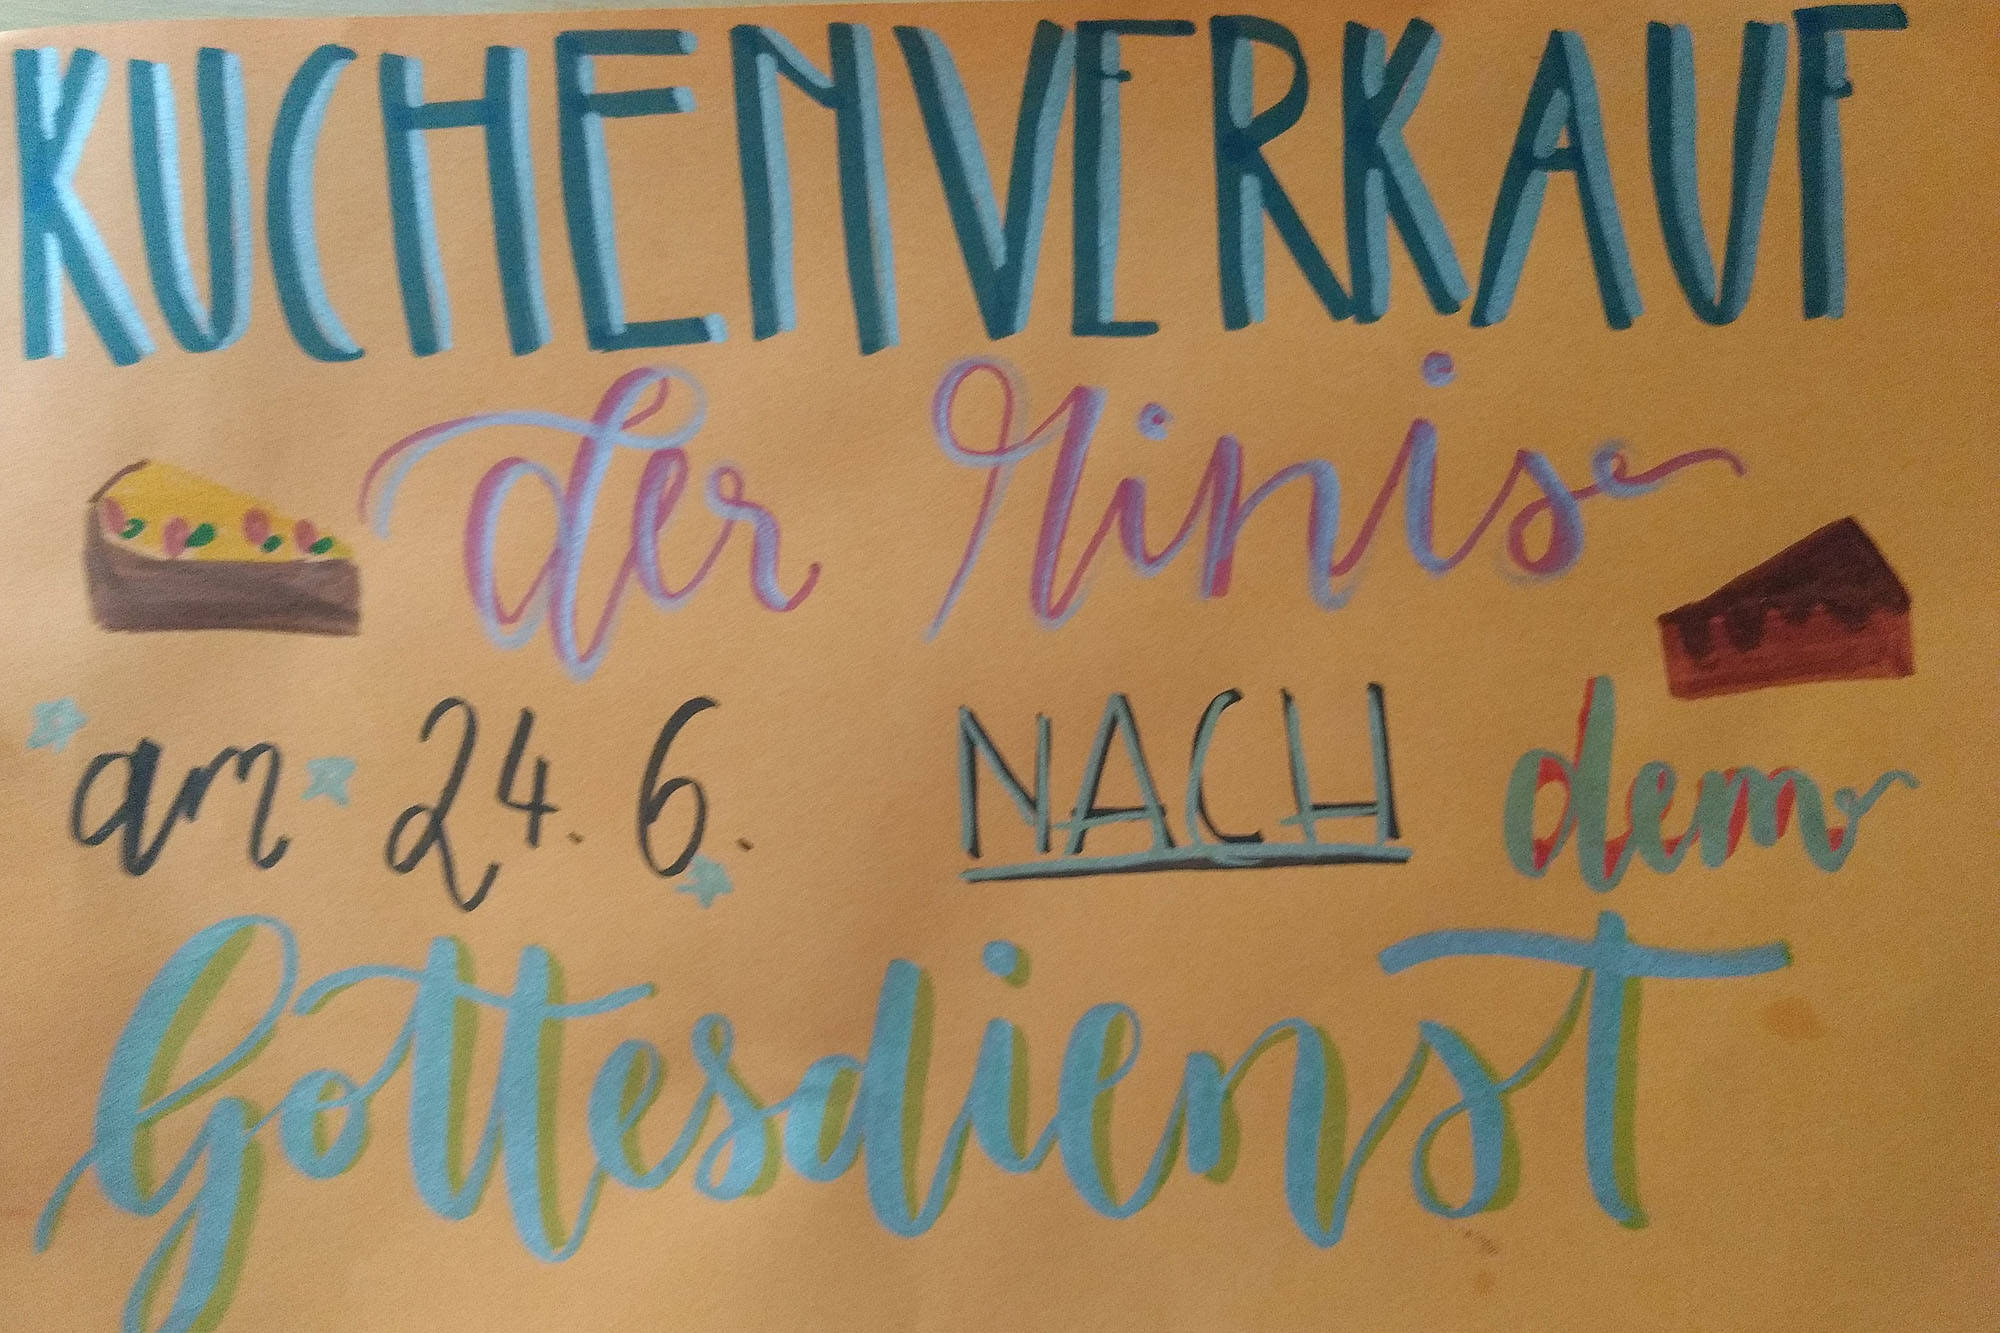 KUCHENVERKAUF
der Minis
am 24.6. NACH dem
Gottesdienst